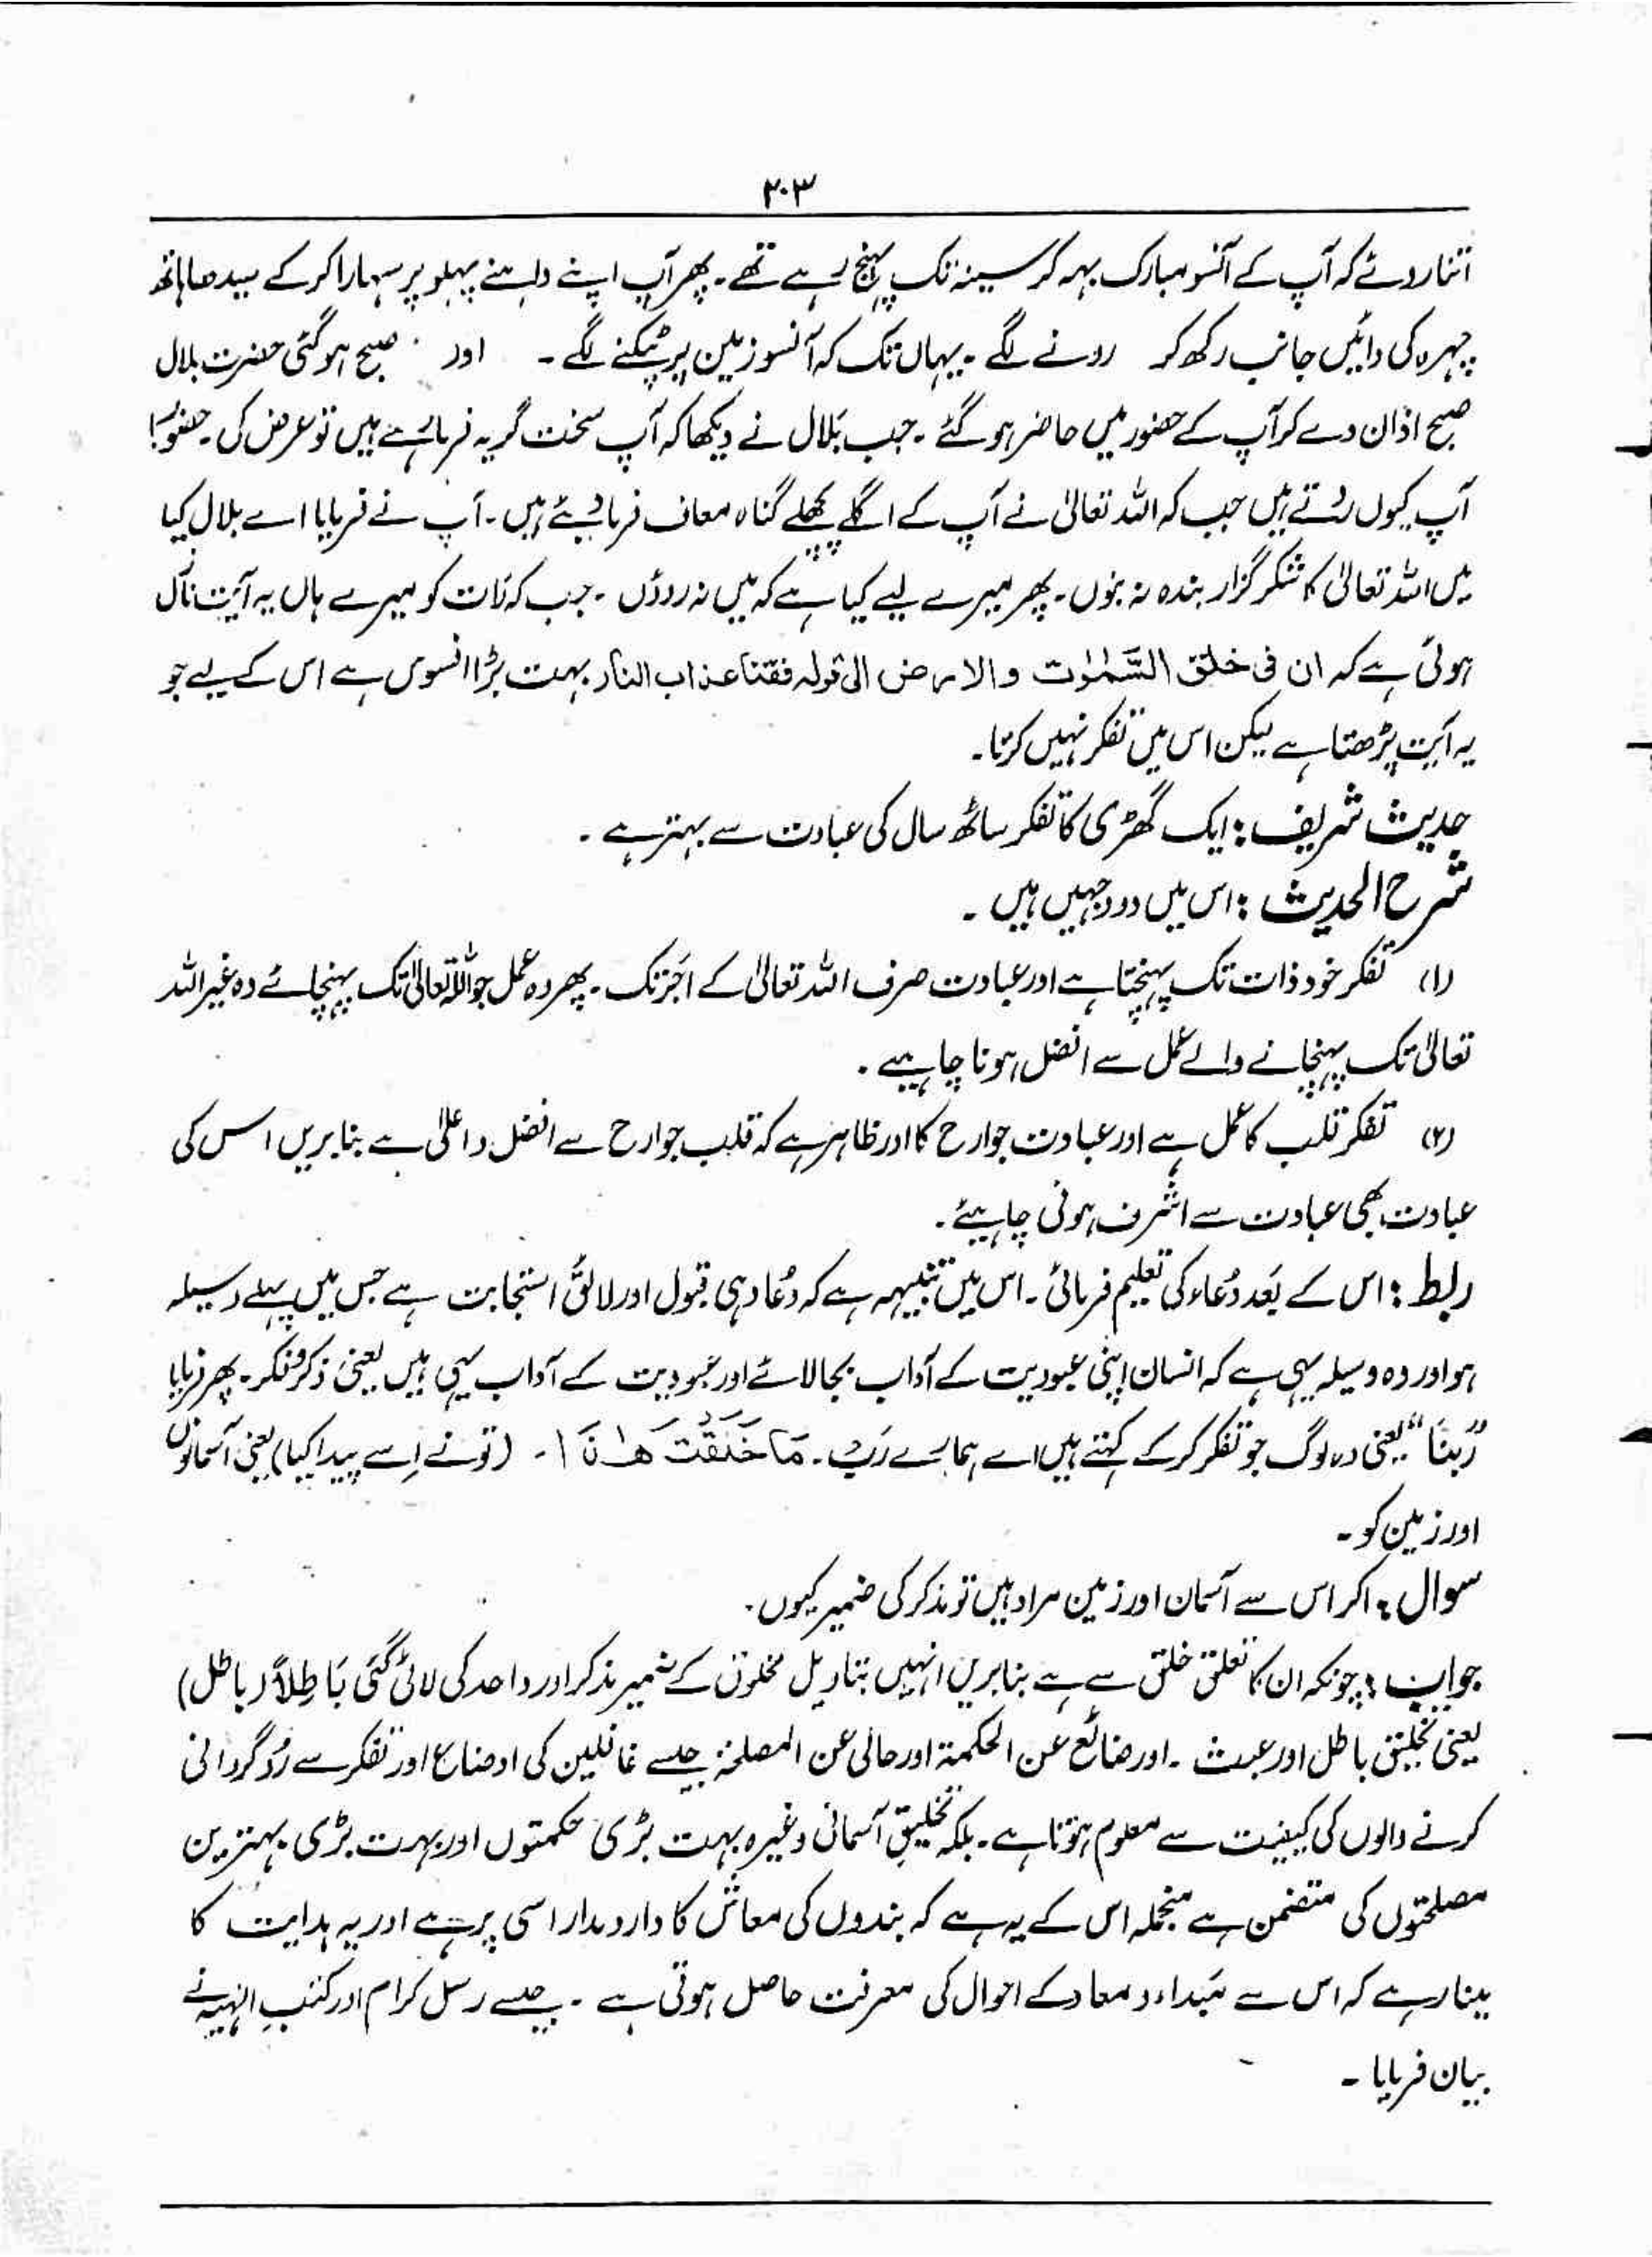 ۳۰۳
اتنا روئے کہ آپ کے آنسو مبارک بہہ کر سینہ تک پہنچ رہے تھے۔ پھر آپ اپنے داہنے پہلو پر سہارا کر کے سیدھا ہاتھ
چہرہ کی دائیں جانب رکھ کر رونے لگے۔ یہاں تک کہ آنسو زمین پر ٹپکنے لگے۔ اور صبح ہو گئی حضرت بلال
صبح اذان دے کر آپ کے حضور میں حاضر ہو گئے۔ جب بلال نے دیکھا کہ آپ سخت گریہ فرما رہے ہیں تو عرض کی۔ حضور!
آپ کیوں روتے ہیں جب کہ اللہ تعالیٰ نے آپ کے اگلے پچھلے گناہ معاف فرما دیئے ہیں۔ آپ نے فرمایا اے بلال کیا
میں اللہ تعالیٰ کا شکر گزار بندہ نہ بنوں۔ پھر میرے لیے کیا ہے کہ میں نہ روؤں۔ جب کہ رات کو میرے ہاں یہ آیت نازل
ہوئی ہے کہ ان فی خلق السَّمٰوٰت والارض الی قولہ فقنا عذاب النار بہت بڑا افسوس ہے اس کے لیے جو
یہ آیت پڑھتا ہے لیکن اس میں تفکر نہیں کرتا۔
حدیث شریف: ایک گھڑی کا تفکر ساٹھ سال کی عبادت سے بہتر ہے۔
شرح الحدیث: اس میں دو وجہیں ہیں۔
(۱) تفکر خود ذات تک پہنچتا ہے اور عبادت صرف اللہ تعالیٰ کے اَجر تک۔ پھر وہ عمل جو اللہ تعالیٰ تک پہنچائے وہ غیر اللہ
تعالیٰ تک پہنچانے والے عمل سے افضل ہونا چاہیے۔
(۲) تفکر قلب کا عمل ہے اور عبادت جوارح کا اور ظاہر ہے کہ قلب جوارح سے افضل و اعلیٰ ہے بنا بریں اس کی
عبادت بھی عبادت سے اشرف ہونی چاہیئے۔
ربط: اس کے بَعد دُعاء کی تعلیم فرمائی۔ اس میں تنبیہہ ہے کہ دُعا وہی قبول اور لائق استجابت ہے جس میں پہلے وسیلہ
ہو اور وہ وسیلہ یہی ہے کہ انسان اپنی عبودیت کے آداب بجا لائے اور عبودیت کے آداب یہی ہیں یعنی ذکر و فکر۔ پھر فرمایا
"رَبنَا" یعنی وہ لوگ جو تفکر کر کے کہتے ہیں اے ہمارے رَب۔ مَا خَلَقْتَ هٰذَا۔ (تو نے اِسے پیدا کیا) یعنی آسمانوں
اور زمین کو۔
سوال: اگر اس سے آسمان اور زمین مراد ہیں تو مذکر کی ضمیر کیوں۔
جواب: چونکہ ان کا تعلق خلق سے ہے بنا بریں انہیں بتاویل مخلوق کے ضمیر مذکر اور واحد کی لائی گئی بَاطِلًا (باطل)
یعنی تخلیق باطل اور عبث۔ اور ضائع عن الحکمۃ اور حالی عن المصلحۃ جیسے غافلین کی اوضاع اور تفکر سے رُوگردانی
کرنے والوں کی کیفیت سے معلوم ہوتا ہے۔ بلکہ تخلیقِ آسمانی وغیرہ بہت بڑی حکمتوں اور بہت بڑی بہترین
مصلحتوں کی متضمن ہے منجملہ اس کے یہ ہے کہ بندوں کی معاش کا دارومدار اسی پر ہے اور یہ ہدایت کا
مینار ہے کہ اس سے مَبداء و معاد کے احوال کی معرفت حاصل ہوتی ہے۔ جیسے رسل کرام اور کتبِ الٰہیہ نے
بیان فرمایا۔